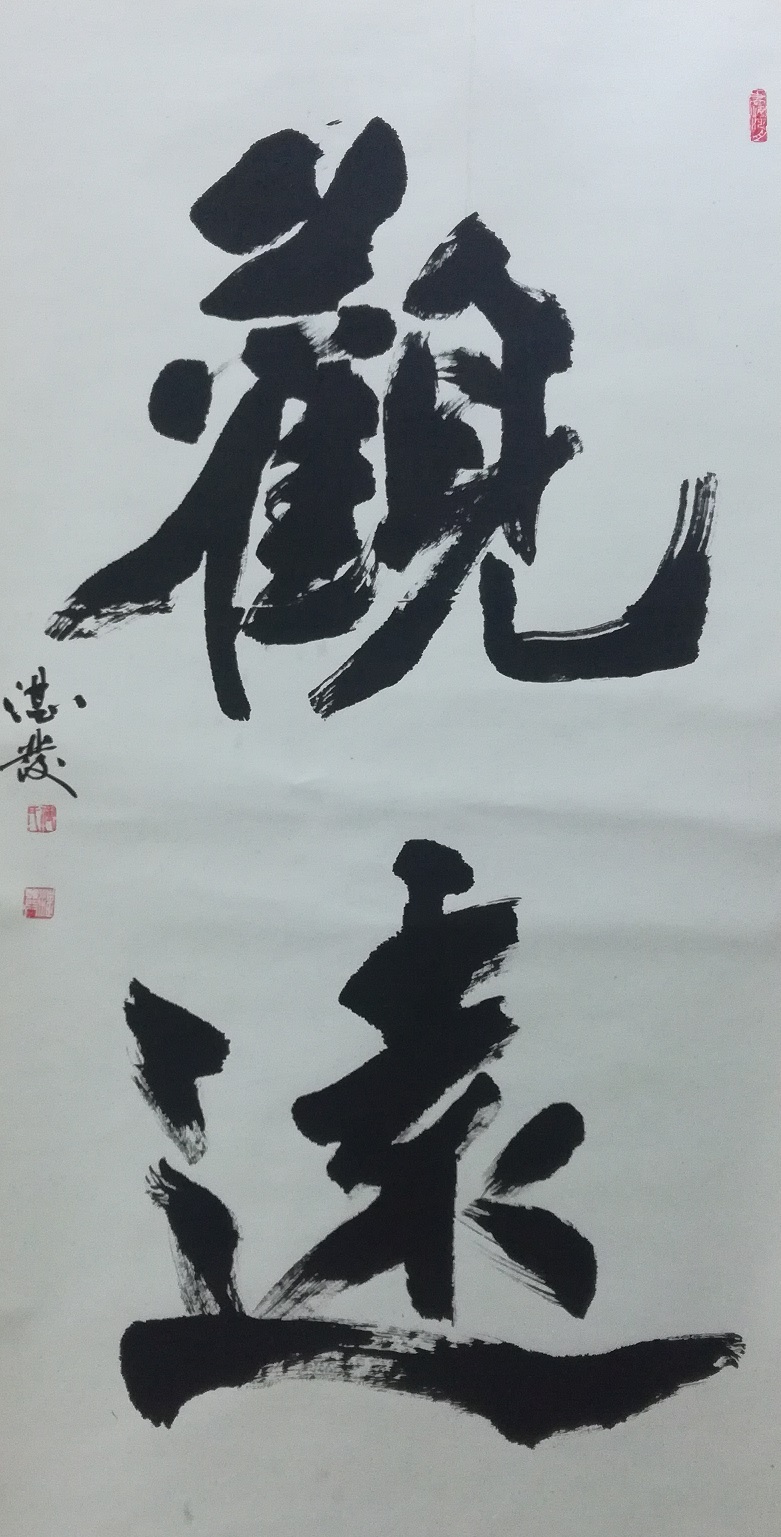 觀
遠
湛發